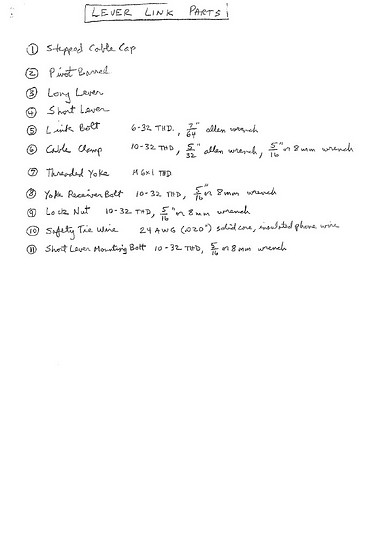 LEVER LINK PARTS
① Stepped Cable Cap
② Pivot Barrel
③ Long Lever
④ Short Lever
⑤ Link Bolt 6-32 THD, 7/64" allen wrench
⑥ Cable Clamp 10-32 THD, 5/32" allen wrench, 5/16" or 8mm wrench
⑦ Threaded Yoke M6x1 THD
⑧ Yoke Receiver Bolt 10-32 THD, 5/16" or 8mm wrench
⑨ Lock Nut 10-32 THD, 5/16" or 8mm wrench
⑩ Safety Tie Wire 24 AWG (.020") solid core, insulated phone wire
⑪ Short Lever Mounting Bolt 10-32 THD, 5/16 or 8mm wrench